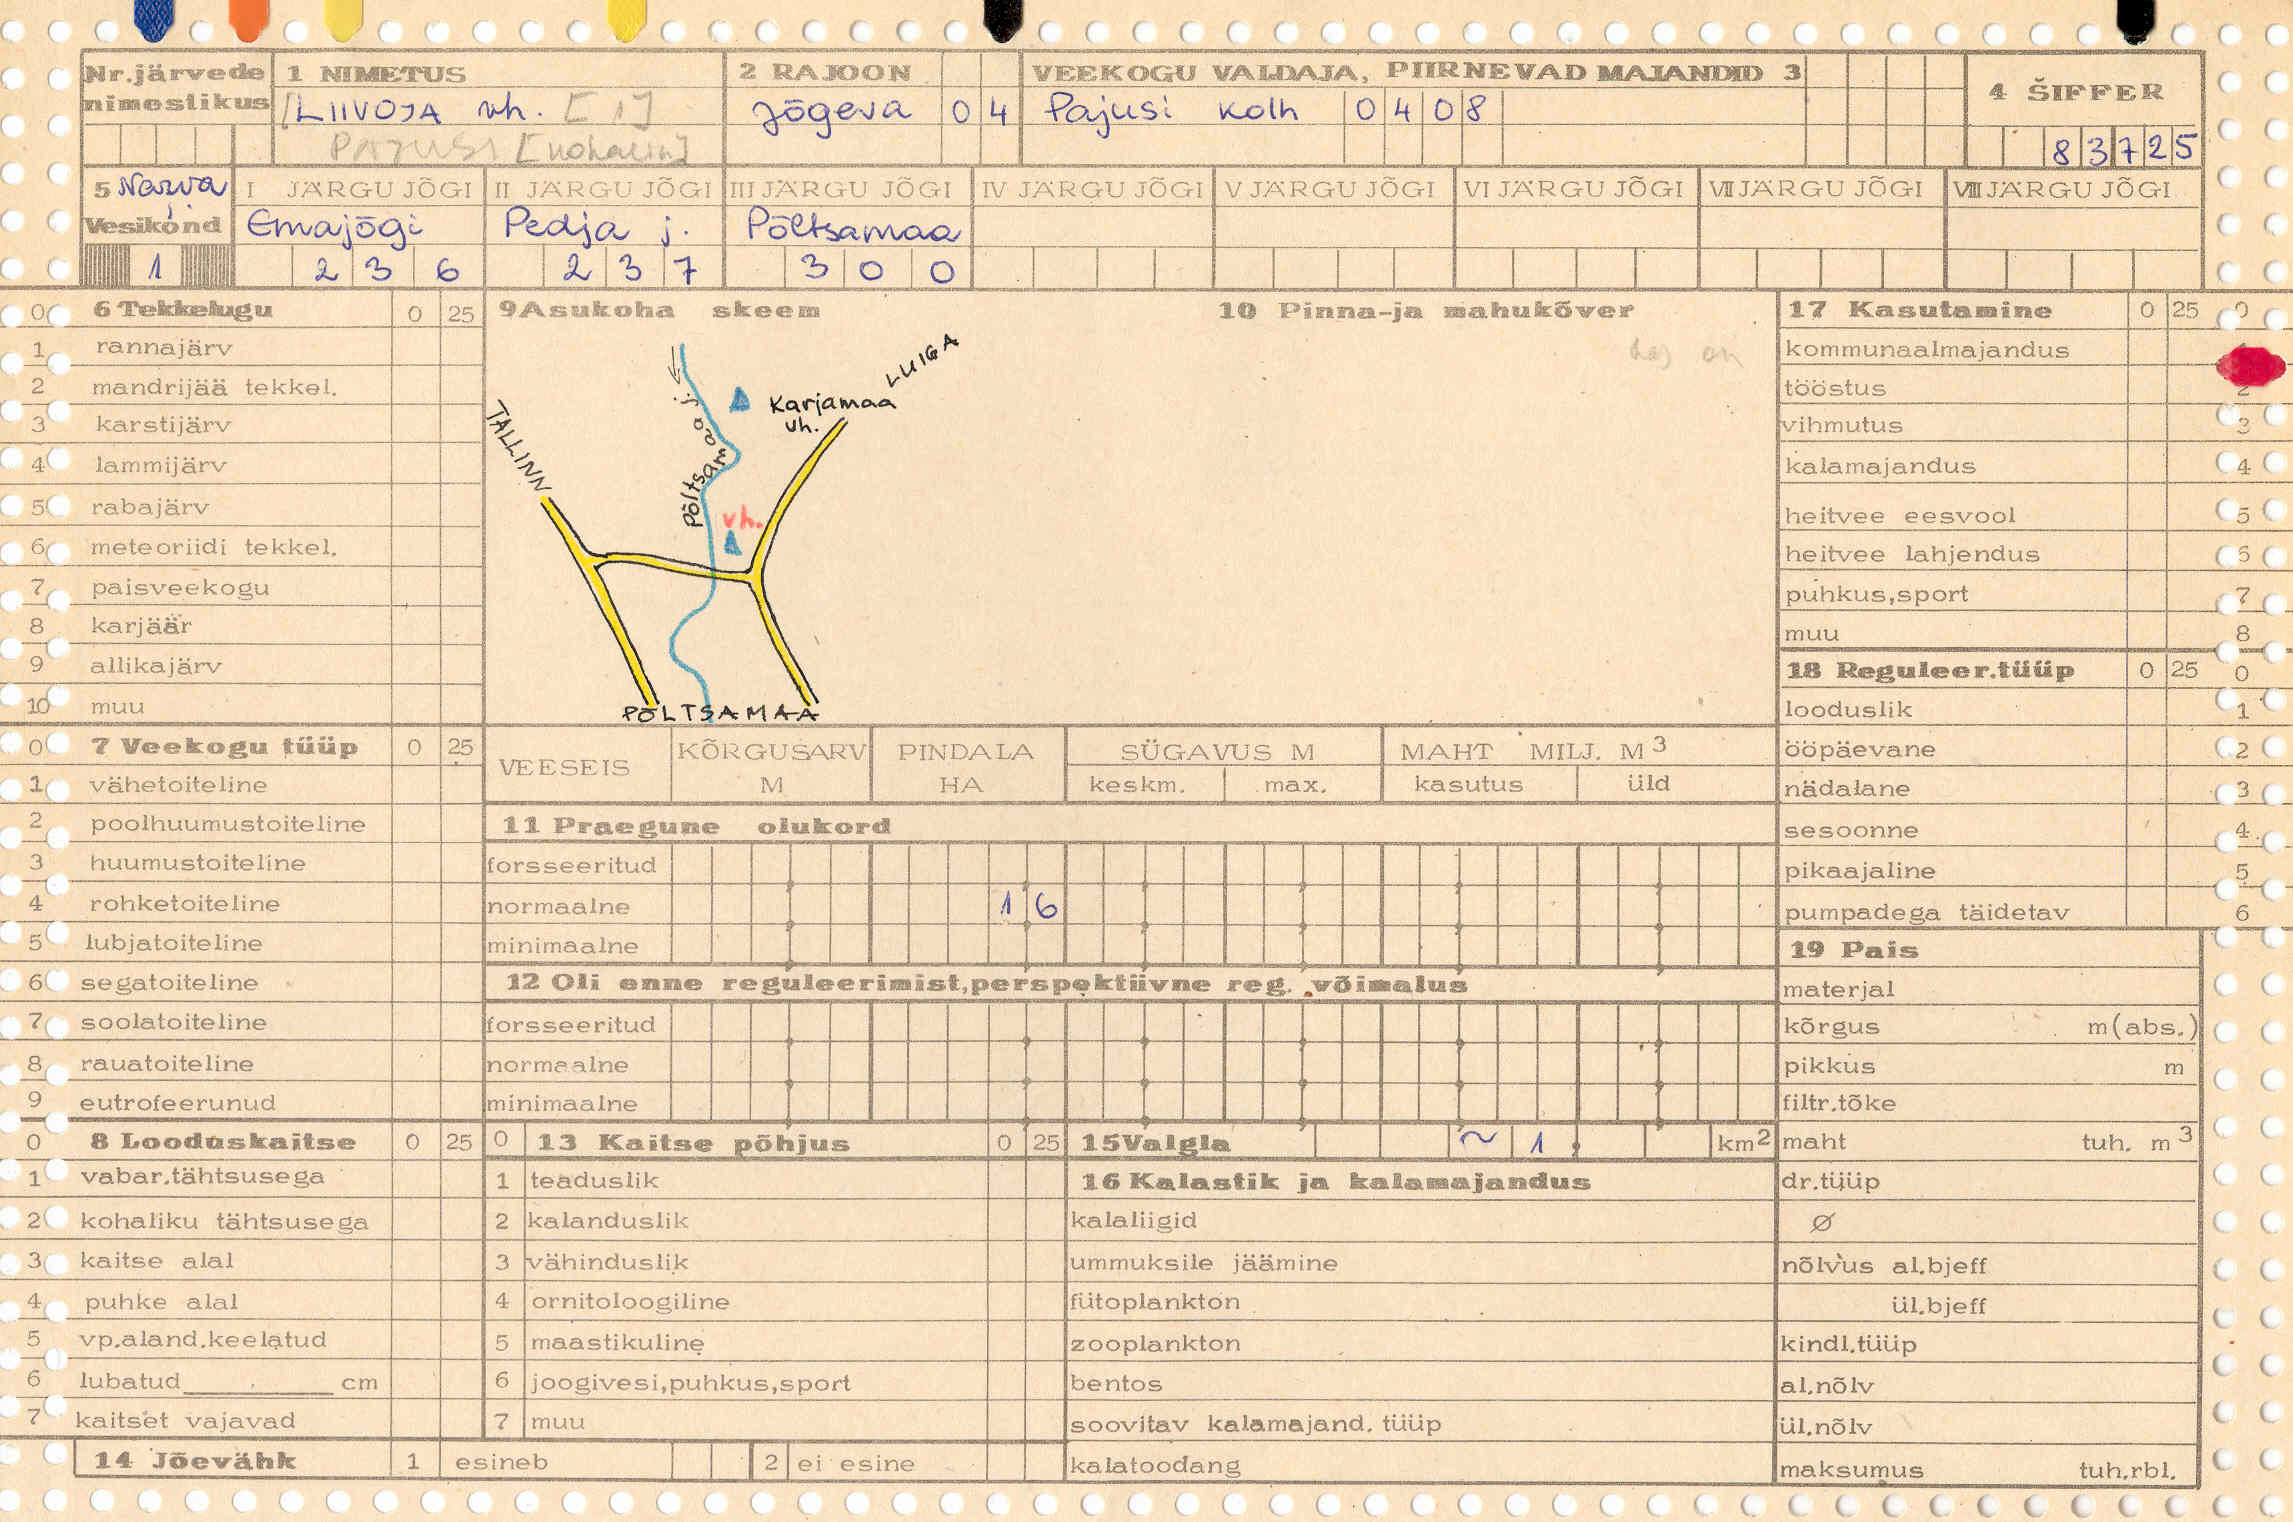 Nr.järvede nimestikus
1 NIMETUS
LIIVOJA vh. [1]
PAJUSI
2 RAJOON
Jõgeva 04
VEEKOGU VALDAJA, PIIRNEVAD MAJANDID 3
Pajusi kolh 0408
4 ŠIFFER
83725
5 Narva j. Vesikond
1
I JÄRGU JÕGI
Emajõgi
236
II JÄRGU JÕGI
Pedja j.
237
III JÄRGU JÕGI
Põltsamaa
300
IV JÄRGU JÕGI
V JÄRGU JÕGI
VI JÄRGU JÕGI
VII JÄRGU JÕGI
VIII JÄRGU JÕGI
0 6 Tekkelugu 0 25
1 rannajärv
2 mandrijää tekkel.
3 karstijärv
4 lammijärv
5 rabajärv
6 meteoriidi tekkel.
7 paisveekogu
8 karjäär
9 allikajärv
10 muu
0 7 Veekogu tüüp 0 25
1 vähetoiteline
2 poolhuumustoiteline
3 huumustoiteline
4 rohketoiteline
5 lubjatoiteline
6 segatoiteline
7 soolatoiteline
8 rauatoiteline
9 eutrofeerunud
0 8 Looduskaitse 0 25
1 vabar.tähtsusega
2 kohaliku tähtsusega
3 kaitse alal
4 puhke alal
5 vp.aland.keelatud
6 lubatud cm
7 kaitset vajavad
14 Jõevähk 1 esineb 2 ei esine
9 Asukoha skeem
TALLINN
Põltsamaa j.
Karjamaa vh.
LUIGA
vh.
PÕLTSAMAA
10 Pinna-ja mahukõver
VEESEIS
KÕRGUSARV M
PINDALA HA
SÜGAVUS M
keskm. max.
MAHT MILJ. M3
kasutus üld
11 Praegune olukord
forsseeritud
normaalne 16
minimaalne
12 Oli enne reguleerimist,perspektiivne reg. võimalus
forsseeritud
normaalne
minimaalne
0 13 Kaitse põhjus 0 25
1 teaduslik
2 kalanduslik
3 vähinduslik
4 ornitoloogiline
5 maastikuline
6 joogivesi,puhkus,sport
7 muu
15 Valgla ~ 1, km2
16 Kalastik ja kalamajandus
kalaliigid
ummuksile jäämine
fütoplankton
zooplankton
bentos
soovitav kalamajand. tüüp
kalatoodang
17 Kasutamine 0 25 0
kommunaalmajandus
tööstus 2
vihmutus 3
kalamajandus 4
heitvee eesvool 5
heitvee lahjendus 6
puhkus,sport 7
muu 8
18 Reguleer.tüüp 0 25 0
looduslik 1
ööpäevane 2
nädalane 3
sesoonne 4
pikaajaline 5
pumpadega täidetav 6
19 Pais
materjal
kõrgus m(abs.)
pikkus m
filtr.tõke
maht tuh. m3
dr.tüüp
Ø
nõlvus al.bjeff
ül.bjeff
kindl.tüüp
al.nõlv
ül.nõlv
maksumus tuh.rbl.